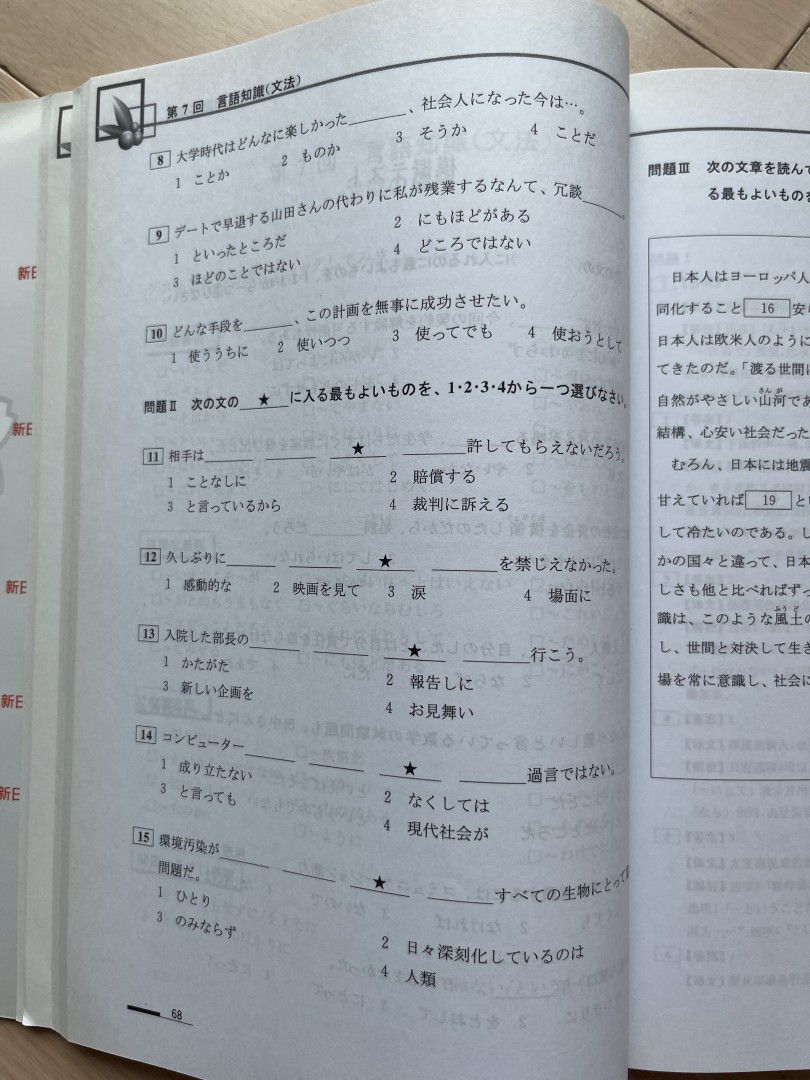 第7回 言語知識(文法)
8 大学時代はどんなに楽しかった______、社会人になった今は…。
1 ことか 2 ものか 3 そうか 4 ことだ
9 デートで早退する山田さんの代わりに私が残業するなんて、冗談______。
1 といったところだ 2 にもほどがある
3 ほどのことではない 4 どころではない
10 どんな手段を______、この計画を無事に成功させたい。
1 使ううちに 2 使いつつ 3 使ってでも 4 使おうとして
問題Ⅱ 次の文の__★__に入る最もよいものを、1・2・3・4から一つ選びなさい。
11 相手は______ ______ __★__ ______許してもらえないだろう。
1 ことなしに 2 賠償する
3 と言っているから 4 裁判に訴える
12 久しぶりに______ ______ __★__ ______を禁じえなかった。
1 感動的な 2 映画を見て 3 涙 4 場面に
13 入院した部長の______ ______ __★__ ______行こう。
1 かたがた 2 報告しに
3 新しい企画を 4 お見舞い
14 コンピューター______ ______ __★__ ______過言ではない。
1 成り立たない 2 なくしては
3 と言っても 4 現代社会が
15 環境汚染が______ ______ __★__ ______すべての生物にとって
問題だ。
1 ひとり 2 日々深刻化しているのは
3 のみならず 4 人類
68
問題Ⅲ 次の文章を読んで
る最もよいものを
日本人はヨーロッパ人
同化すること 16 安
日本人は欧米人のように
てきたのだ。「渡る世間に
自然がやさしい山河であ
さんが
結構、心安い社会だった
むろん、日本には地震
甘えていれば 19 と
して冷たいのである。し
かの国々と違って、日本
しさも他と比べればずっ
識は、このような風土の
ふうど
し、世間と対決して生き
場を常に意識し、社会に
新E
新E
新E
新E
新E